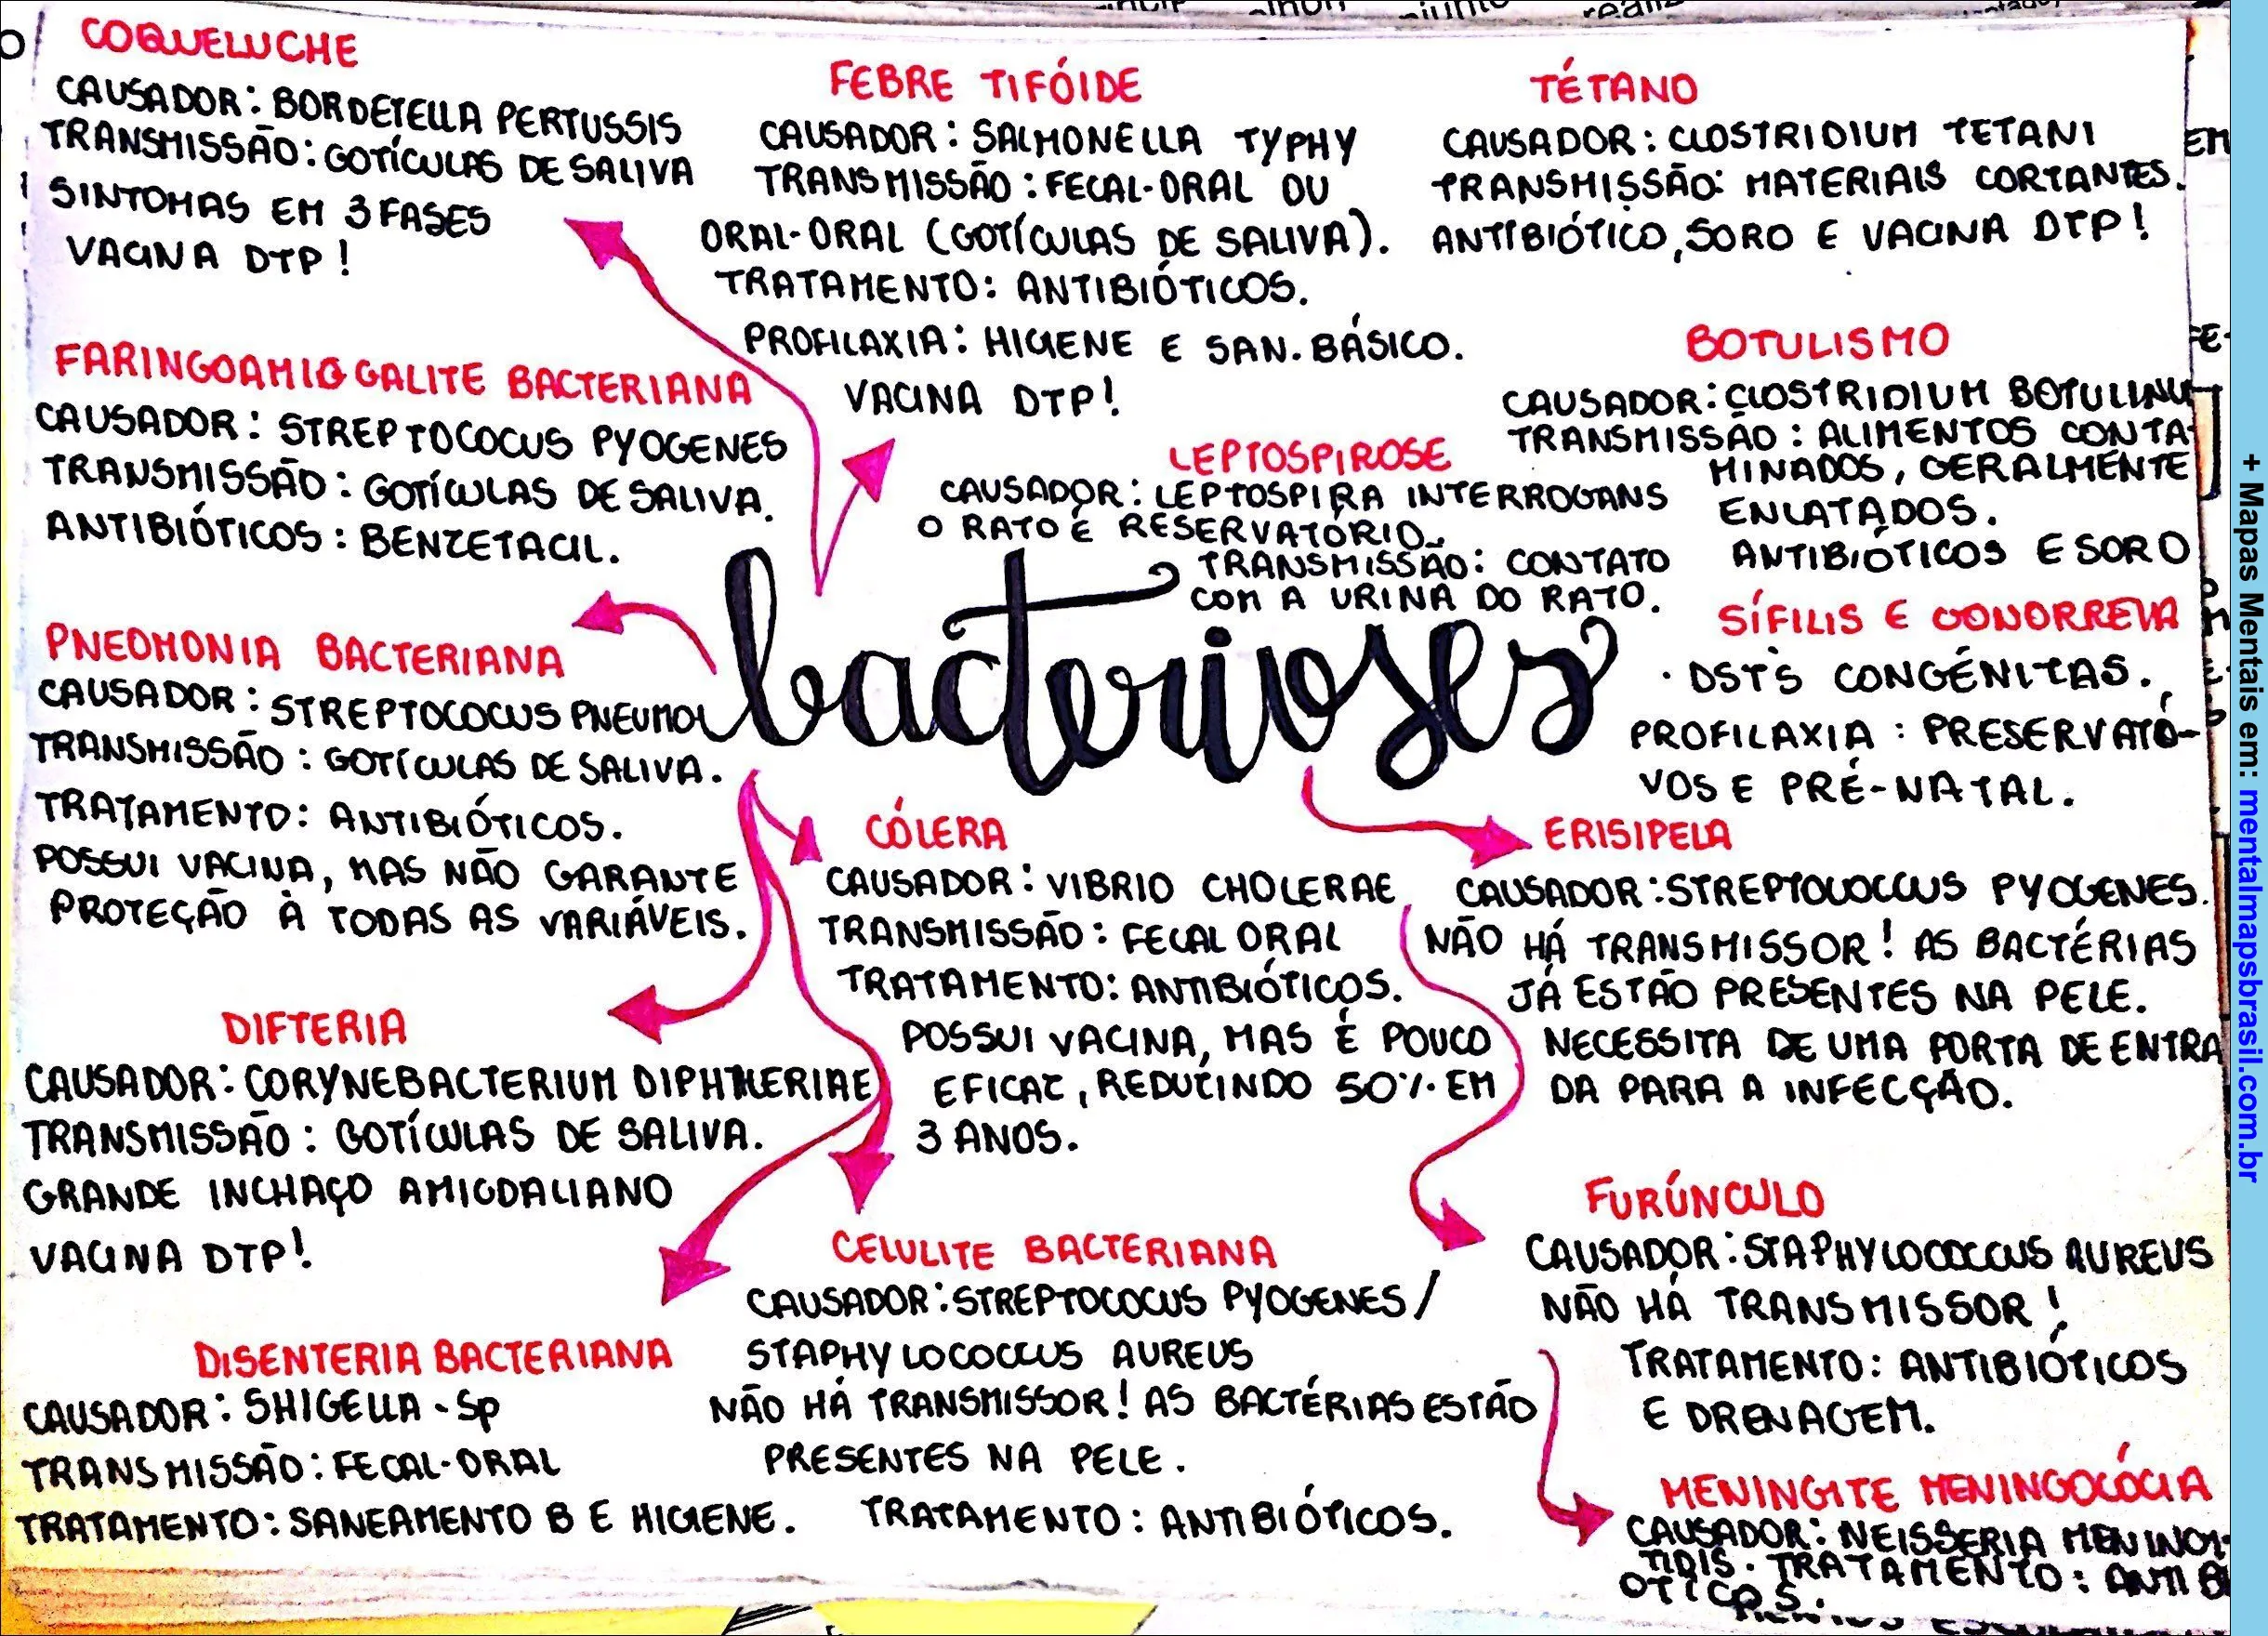 COQUELUCHE
CAUSADOR: BORDETELLA PERTUSSIS
TRANSMISSÃO: GOTÍCULAS DE SALIVA
SINTOMAS EM 3 FASES
VACINA DTP!
FEBRE TIFÓIDE
CAUSADOR: SALMONELLA TYPHY
TRANSMISSÃO: FECAL-ORAL OU
ORAL-ORAL (GOTÍCULAS DE SALIVA).
TRATAMENTO: ANTIBIÓTICOS.
PROFILAXIA: HIGIENE E SAN. BÁSICO.
VACINA DTP!
TÉTANO
CAUSADOR: CLOSTRIDIUM TETANI
TRANSMISSÃO: MATERIAIS CORTANTES.
ANTIBIÓTICO, SORO E VACINA DTP!
FARINGOAMIGGALITE BACTERIANA
CAUSADOR: STREPTOCOCUS PYOGENES
TRANSMISSÃO: GOTÍCULAS DE SALIVA.
ANTIBIÓTICOS: BENZETACIL.
LEPTOSPIROSE
CAUSADOR: LEPTOSPIRA INTERROGANS
O RATO É RESERVATÓRIO.
TRANSMISSÃO: CONTATO
COM A URINA DO RATO.
BOTULISMO
CAUSADOR: CLOSTRIDIUM BOTULINU
TRANSMISSÃO: ALIMENTOS CONTA-
MINADOS, GERALMENTE
ENLATADOS.
ANTIBIÓTICOS E SORO
bacterioses
PNEOMONIA BACTERIANA
CAUSADOR: STREPTOCOCUS PNEUMO
TRANSMISSÃO: GOTÍCULAS DE SALIVA.
TRATAMENTO: ANTIBIÓTICOS.
POSSUI VACINA, MAS NÃO GARANTE
PROTEÇÃO À TODAS AS VARIÁVEIS.
SÍFILIS E GONORREIA
· DST'S CONGÉNITAS.
PROFILAXIA: PRESERVATÓ-
VOS E PRÉ-NATAL.
CÓLERA
CAUSADOR: VIBRIO CHOLERAE
TRANSMISSÃO: FECAL ORAL
TRATAMENTO: ANTIBIÓTICOS.
POSSUI VACINA, MAS É POUCO
EFICAZ, REDUZINDO 50% EM
3 ANOS.
ERISIPELA
CAUSADOR: STREPTOCOCCUS PYOGENES.
NÃO HÁ TRANSMISSOR! AS BACTÉRIAS
JÁ ESTÃO PRESENTES NA PELE.
NECESSITA DE UMA PORTA DE ENTRA
DA PARA A INFECÇÃO.
DIFTERIA
CAUSADOR: CORYNEBACTERIUM DIPHTHERIAE
TRANSMISSÃO: GOTÍCULAS DE SALIVA.
GRANDE INCHAÇO AMIGDALIANO
VACINA DTP!
FURÚNCULO
CAUSADOR: STAPHYLOCOCCUS AUREUS
NÃO HÁ TRANSMISSOR!
TRATAMENTO: ANTIBIÓTICOS
E DRENAGEM.
CELULITE BACTERIANA
CAUSADOR: STREPTOCOCUS PYOGENES/
STAPHYLOCOCCUS AUREUS
NÃO HÁ TRANSMISSOR! AS BACTÉRIAS ESTÃO
PRESENTES NA PELE.
TRATAMENTO: ANTIBIÓTICOS.
DISENTERIA BACTERIANA
CAUSADOR: SHIGELLA - Sp
TRANSMISSÃO: FECAL-ORAL
TRATAMENTO: SANEAMENTO B E HIGIENE.
MENINGITE MENINGOCÓCIA
CAUSADOR: NEISSERIA MENINGI-
TIDIS. TRATAMENTO: ANTIBI
ÓTICOS.
+ Mapas Mentais em: mentalmapsbrasil.com.br